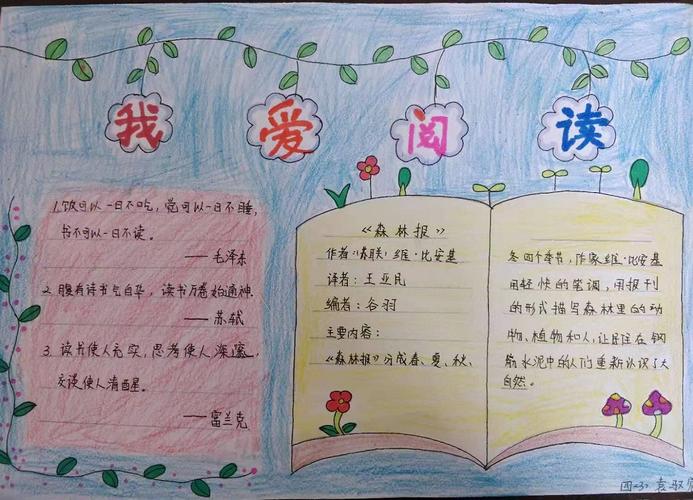 我爱阅读
1.饭可以一日不吃，觉可以一日不睡，
书不可以一日不读。
——毛泽东
2.腹有诗书气自华，读书万卷始通神
——苏轼
3.读书使人充实，思考使人深邃，
交谈使人清醒。
——富兰克
《森林报》
作者(苏联)维·比安基
译者：王亚民
编者：谷羽
主要内容：
《森林报》分成春、夏、秋、
冬四个季节，作家维·比安基
用轻快的笔调，用报刊
的形式描写森林里的动
物、植物和人，让居住在钢
筋水泥中的人们重新认识了大
自然。
四
袁